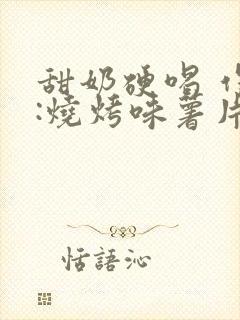 甜奶硬唱
:燒烤味薯片
恬語沁